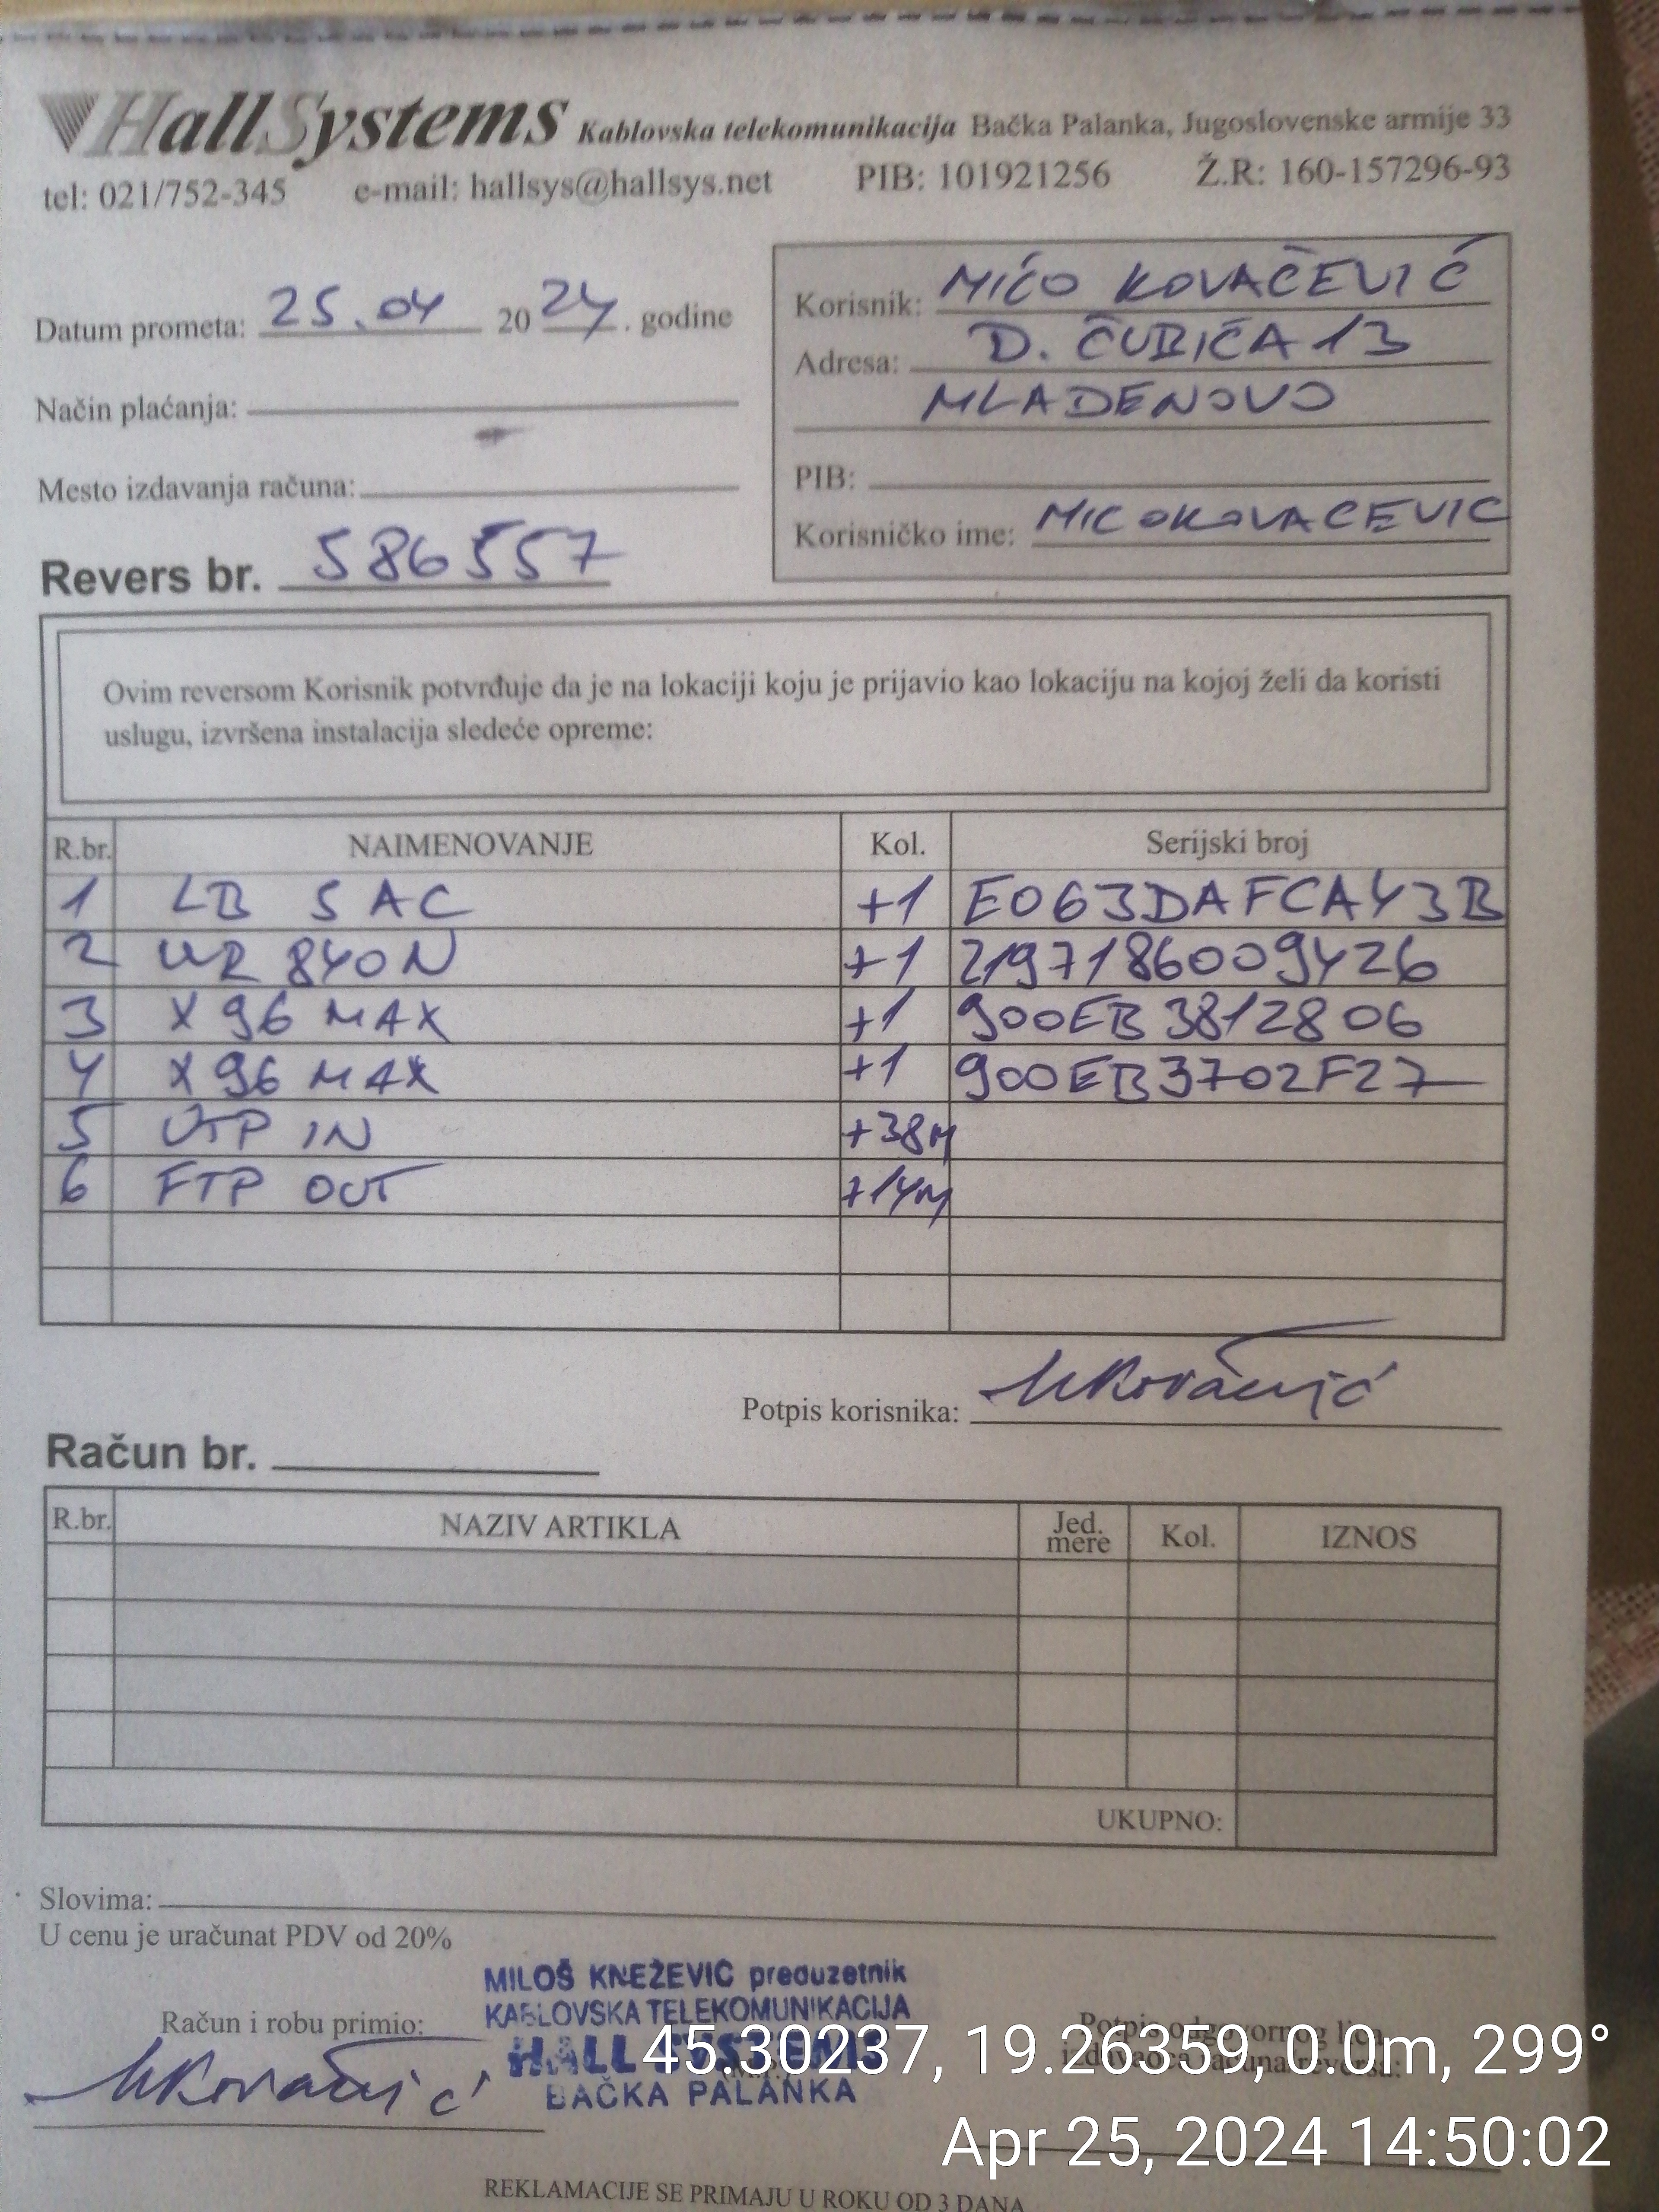 HallSystems Kablovska telekomunikacija Bačka Palanka, Jugoslovenske armije 33
tel: 021/752-345 e-mail: hallsys@hallsys.net PIB: 101921256 Ž.R: 160-157296-93
Datum prometa: 25.04 2024. godine
Način plaćanja:
Mesto izdavanja računa:
Revers br. 586557
Korisnik: MIĆO KOVAČEVIĆ
Adresa: D. ČUBIĆA 13
MLADENOVO
PIB:
Korisničko ime: MICOKOVACEVIC
Ovim reversom Korisnik potvrđuje da je na lokaciji koju je prijavio kao lokaciju na kojoj želi da koristi
uslugu, izvršena instalacija sledeće opreme:
R.br. NAIMENOVANJE Kol. Serijski broj
1 LB 5 AC +1 E063DAFCA43B
2 WR 840N +1 2197186009426
3 X96 MAX +1 900EB3812806
4 X96 MAX +1 900EB3702F27
5 UTP IN +38M
6 FTP OUT +14M
Potpis korisnika: MKovačević
Račun br.
R.br. NAZIV ARTIKLA Jed. mere Kol. IZNOS
UKUPNO:
Slovima:
U cenu je uračunat PDV od 20%
MILOŠ KNEŽEVIĆ preduzetnik
KABLOVSKA TELEKOMUNIKACIJA
HALL SYSTEMS
BAČKA PALANKA
Račun i robu primio:
MKovačević
Potpis odgovornog lica
izdavaoca računa/reversa:
45.30237, 19.26359, 0.0m, 299°
Apr 25, 2024 14:50:02
REKLAMACIJE SE PRIMAJU U ROKU OD 3 DANA